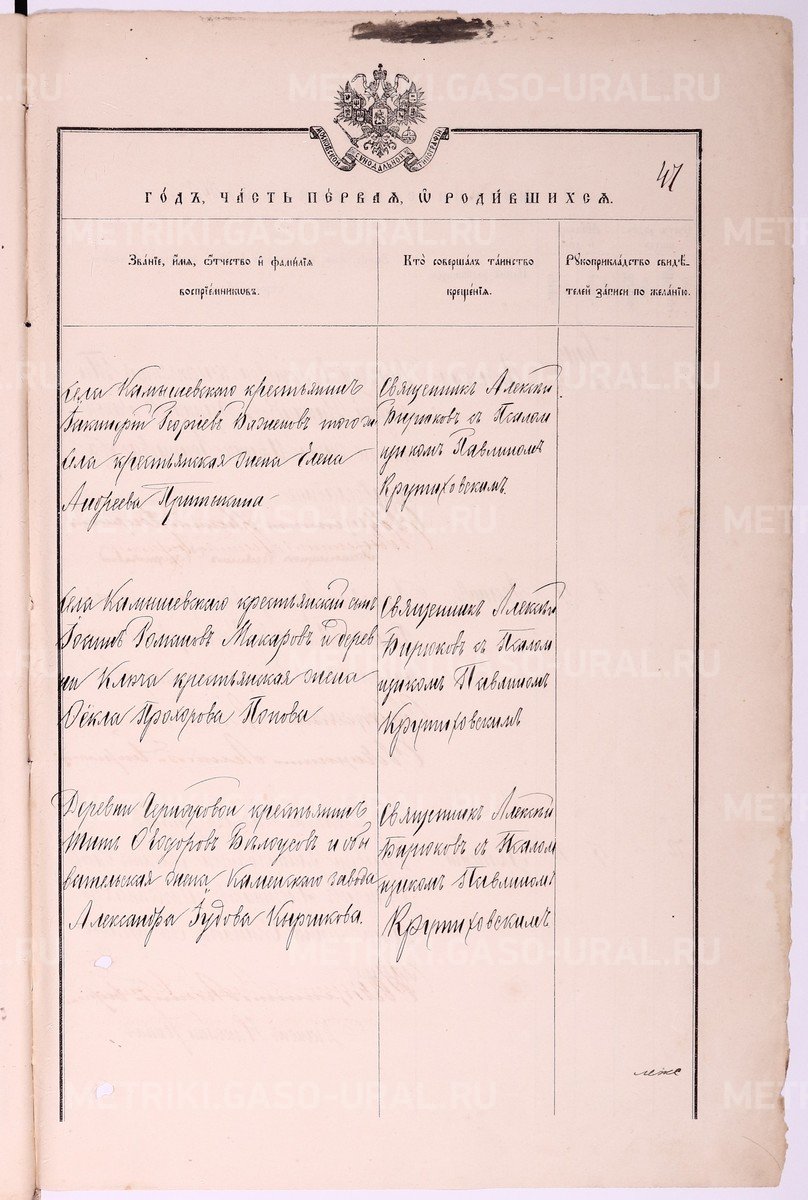 МОСКОВСКОЙ СѴНОДАЛЬНОЙ ТИПОГРАФІИ
47
ГО́ДЪ, ЧА́СТЬ ПЕ́РВАЯ, Ѡ҆ РОДИ́ВШИХСЯ.
Зва́нїе, и҆́мя, ѻ҆́тчество и҆ фами́лїя
воспрїе́мникѡвъ.
Кто̀ соверша́лъ та́инство
креще́нїя.
Рꙋкоприкла́дство свидѣ́-
телей за́писи по жела́нїю.
Села Камышевскаго крестьянинъ
Георгіевъ того же
села крестьянская жена Елена
Андреева
Священникъ Алексѣй
Бирюковъ съ Псалом
щикомъ Павлиномъ
Крутиховскимъ.
Села Камышевскаго крестьянскій сынъ
Іоаннъ Романовъ Макаровъ и дерев
ни Ключа крестьянская жена
Ѳекла Прохорова Попова
Священникъ Алексѣй
Бирюковъ съ Псалом
щикомъ Павлиномъ
Крутиховскимъ
Деревни Черноусовой крестьянинъ
Титъ Ѳеодоровъ Бѣлоусовъ и обы
вательская жена Каменскаго завода
Александра Кырчикова.
Священникъ Алексѣй
Бирюковъ съ Псалом
щикомъ Павлиномъ
Крутиховскимъ
METRIKI.GASO-URAL.RU